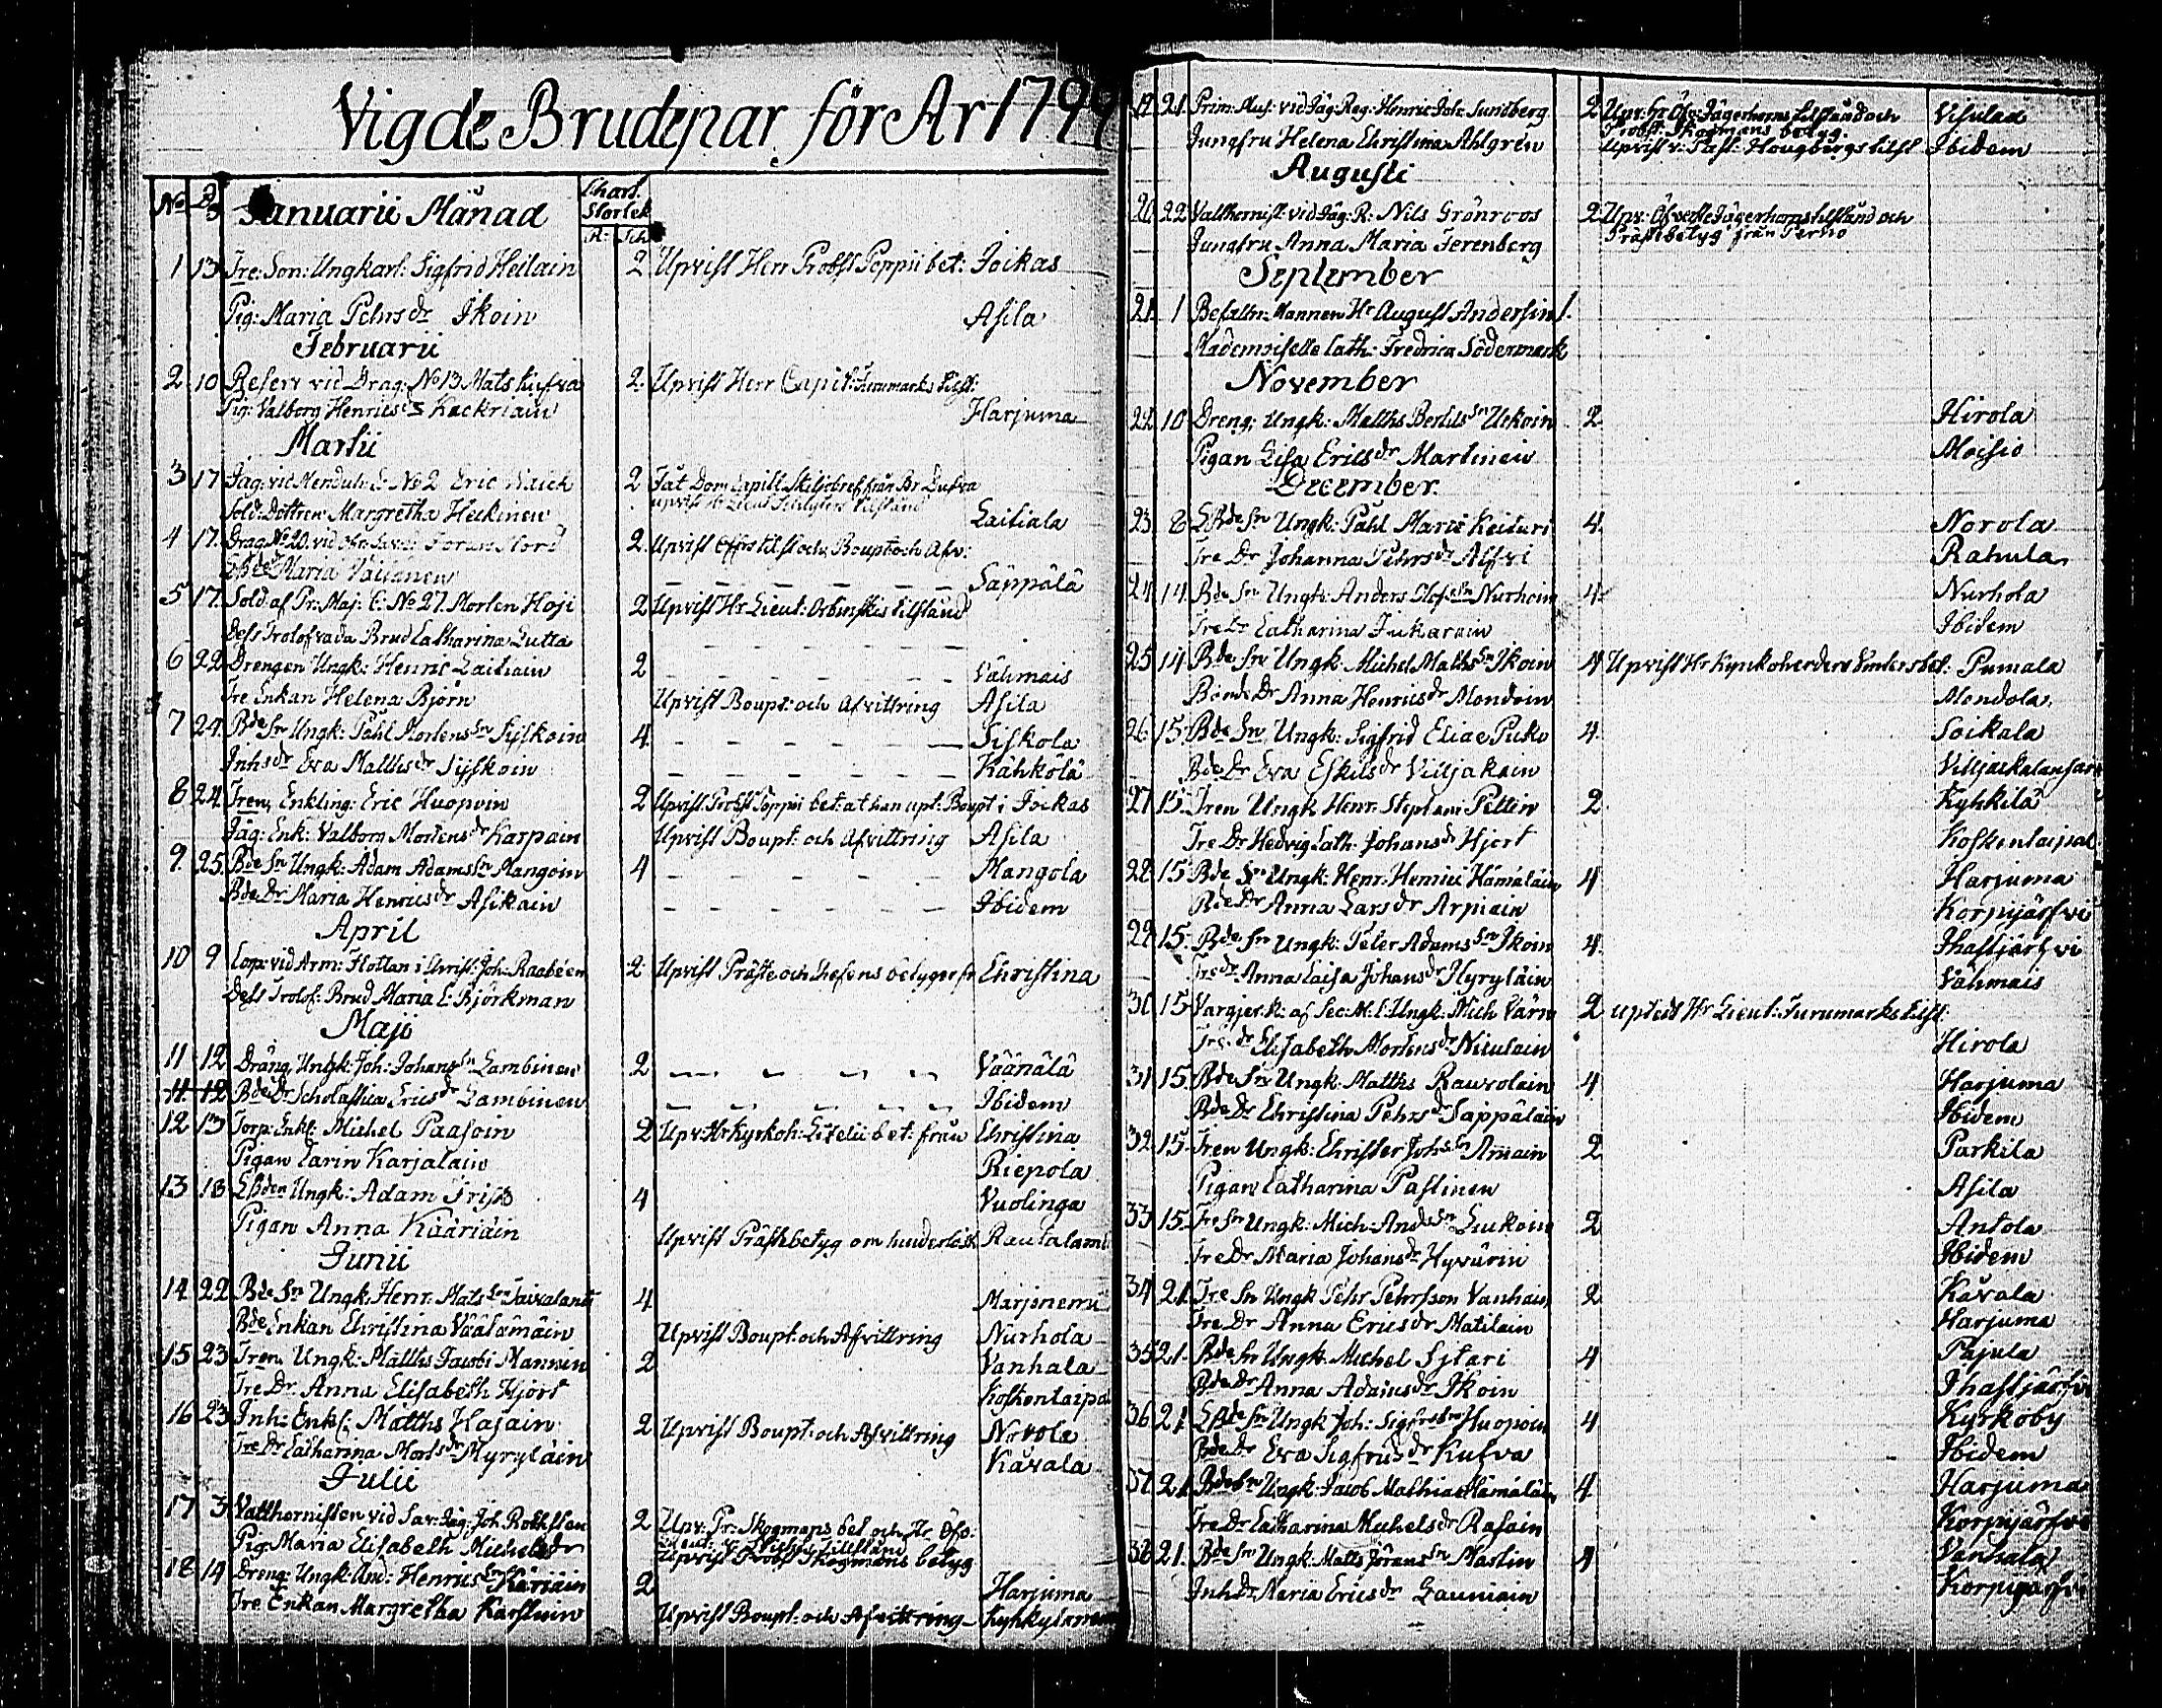 Vigde Brudepar för År 1799
No D
Januarii Månad
Charl. Storlek
R: Sch
1 13 Tre: Son: Ungkarl: Sigfrid Heilain 2 Upvist Herr Probst Poppii bet: Joikas
Pig: Maria Pehrs dr Ikoin Asila
Februarii
2 10 Reserv vid Drag: No 13 Mats Kufva 2. Upvist Herr Capit: Furumarks tilst:
Pig: Valborg Henrics dr Kackriain Harjuma
Martii
3 17 Jäg: vid Menduh C: No 2 Eric 2 Dom Capitl. Skiljobref från Br Dufva
Sold: Dottren Margretha Heikinen Laitiala
4 17. Drag No 20. vid 2. Upvist tilst och Boupt: och Afv:
Maria Vaisanen Säppälä
5 17. Sold: af Pr: Maj: C: No 27 Morten Hoji 2 Upvist Hr Lieut: tilstånd
Dess Trolofvada Brud Catharina Lutta
6 22 Drengen Ungk: Henric Laitiain 2 Vähmais
Tre Enkan Helena Björn Upvist Boupt: och Afvittring Asila
7 24. Bde Sn Ungk: Påhl Mortens Sn Syskoin 4. Siskola
Inhs dr Eva Matths dr Syskoin Kähkölä
8 24. Tren Enkling: Eric Huopoin 2 Upvist: Probst Poppii bet: at han upt: Boupt i Jockas
Jäg: Enk: Valborg Mortens dr Karpain Upvist Boupt: och Afvittring Asila
9. 25. Bde Sn Ungk: Adam Adams Sn Mangoin 4 Mangola
Bde Dr Maria Henrics dr Asikain Ibidem
April
10 9 Corp: vid Arm: Flottan i Christ: Joh: Raabeen 2 Upvist Präste och Chefens betyger fr Christina
Dess Trolof: Brud Maria E: Björkman
Maji
11 12 Dräng Ungk: Joh: Johans Sn Lambinen 2 Väänälä
11 12 Bde Dr Scholastica Erics dr Lambinen Ibidem
12 13 Torp: Enkl: Michel Paasoin 2 Upv: Hr Kyrkoh: bet: från Christina
Pigan Carin Karjalain Riepola
13 18 Ungk: Adam Friis 4 Vuolinga
Pigan Anna Kääriäin Upvist Prästebetyg om hinderlösh Rautalami
Junii
14 22 Bde Sn Ungk. Henr: Mats Sn Taivalanti 4 Marjonemi
Bde Enkan Christina Väätämäin Upvist Boupt: och Afvittring Nurhola
15 23 Tren Ungk: Matths Jacobi Mannin 2 Vanhala
Tre Dr. Anna Elisabeth Hjort Koskentaipal
16 23 Inh: Enkl: Matths Hasain 2 Upvist Boupt: och Afvittring Norola
Tre Dr Catharina Morts dr Hyryläin Kävala
Julii
17 3 Valthornisten vid Sav: Jäg: Joh. Rothsten 2 Upv: Pr: Skogmans bet och Hr Öfv:
Pig: Maria Elisabeth Michels dr Upvist Probst Skogmans betyg
18 14 Dreng: Ungk: And: Henrics Sn Käriäin 2 Harjuma
Tre Enkan Margretha Karstuin Upvist Boupt: och Afvittring Kyhkylä
19 21. Prim: Mus: vid Jäg: Reg: Henric Joh: Sundberg 2 Upv: Hr Öfv: Jägerhorns tilstånd och Probst: Skogmans betyg. Visulax
Jungfru Helena Christina Ahlgren Upvist v: Past: Hougbergs tilst Ibidem
Augusti
20 22 Valthornist: vid Jäg: R: Nils Grönroos 2 Upv: Öfverste Jägerhorns tilstånd och Prästebetyg från Perno
Jungfru Anna Maria Ferenberg
September
21 1 Befalln: Mannen Hr August Andersin 1.
Mademoiselle Cath: Fredrica Södermark
November
22 10 Dreng: Ungk: Matths Bertils Sn Uckoin 2 Hirola
Pigan Lisa Erics dr Martinein Moisio
December
23 8 Ungk: Påhl Marci Keituri 4. Norola
Tre Dr Johanna Pehrs dr Rahula
24 14 Bde Sn Ungk: Anders Olofs Sn Nurhoin 4. Nurhola
Tre Dr Catharina Jukarain Ibidem
25 14 Bde Sn Ungk. Michel Matths Sn Ikoin 4 Upvist Hr Kyrkoherdens bet: Pumala
Bonde Dr Anna Henrics dr Mondoin Mondola.
26 15 Bde Sn Ungk: Sigfrid Eliae Puko 4. Soikala
Bde Dr Eva Eskils dr Viljakain Viljackalansari
27 15 Tren Ungk Henr: Stephani Peltin 2 Kyhkilä
Tre Dr Hedvig Cath: Johans dr Hjort Koskentaipal
28 15 Bde Sn Ungk: Henr: Henrici Hämäläin 4 Harjuma
Bde Dr Anna Lars dr Arpiain Korpijärfvi
29 15. Bde Sn Ungk: Peter Adams Sn Ikoin 4. Ihastjärfvi
Tre dr Anna Caisa Johans dr Hyryläin Vähmais
30 15 Vargjer.k: af Sec: M: C: Ungk: Mich Värn 2 uptedt Hr Lieut: Furumarks tilst:
Tre dr Elisabeth Mortens dr Niculain Hirola
31 15 Bde Sn Ungk: Matths Rauvolain 4 Harjuma
Bde Dr Christina Pehrs dr Sappäläin Ibidem
32 15 Tren Ungk: Christer Johs Sn Amiain 2 Parkila
Pigan Catharina Paslinen Asila
33 15. Tre Sn Ungk: Mich: Ands Sn Liukoin 2 Antola
Tre Dr Maria Johans dr Hyvärin Ibidem
34 21. Tre Sn Ungk Pehr Pehrsson Vanhain 2 Kävala
Tre Dr Anna Erics dr Matilain Harjuma
35 21. Bde Sn Ungk. Michel Sytari 4 Pajula
Bde Dr Anna Adams dr Ikoin Ihastjärfvi
36 21 Ungk Joh: Sigfrs Sn Huopoin 4 Kyrkoby
Bde Dr Eva Sigfrids dr Kufva Ibidem
37 21 Bde Sn Ungk: Jacob Mathiae Hämäläin 4. Harjuma
Tre Dr Catharina Michels dr Rasain Korpijärfvi
38 21. Bde Sn Ungk: Matts Jörans Sn Mastin 4 Vanhala
Inh Dr Maria Erics dr Launiain Korpijärfvi